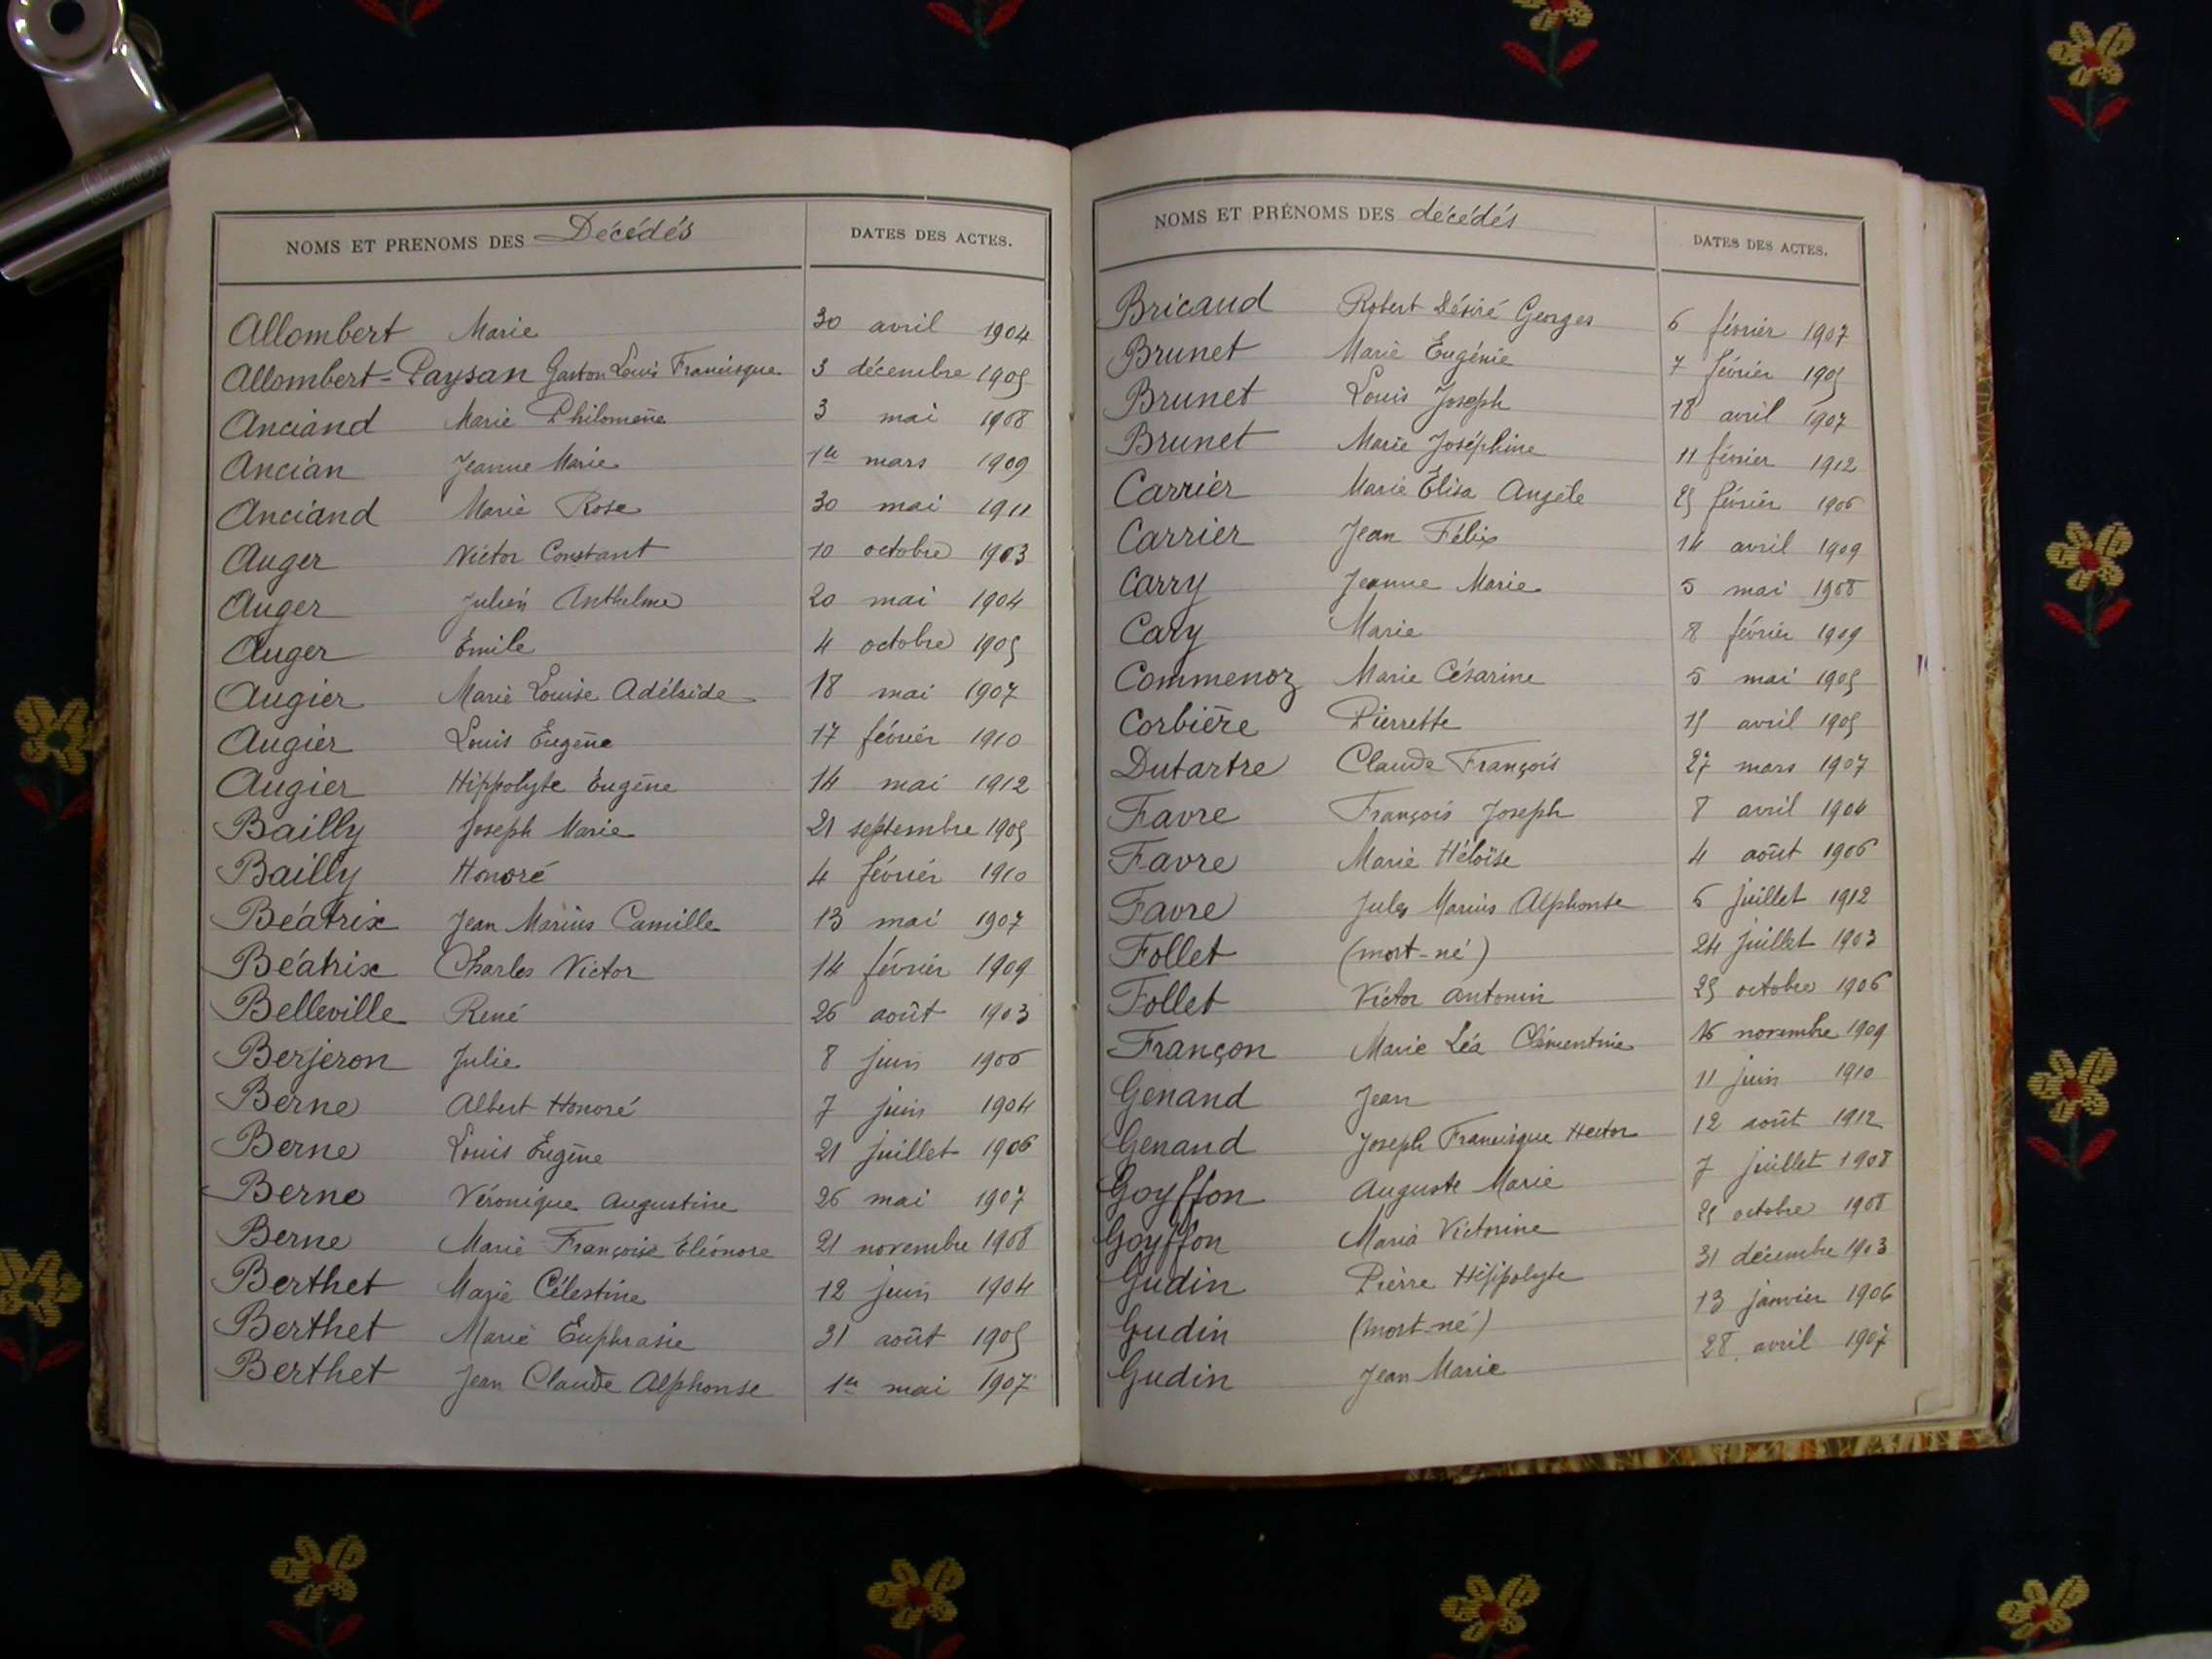 NOMS ET PRENOMS DES Décédés DATES DES ACTES.
Allombert Marie 30 avril 1904
Allombert-Paysan Gaston Louis Francisque 3 décembre 1905
Anciand Marie Philomène 3 mai 1908
Ancian Jeanne Marie 1er mars 1909
Anciand Marie Rose 30 mai 1911
Auger Victor Constant 10 octobre 1903
Auger Julien Anthelme 20 mai 1904
Auger Emile 4 octobre 1905
Augier Marie Louise Adélaïde 18 mai 1907
Augier Louis Eugène 17 février 1910
Augier Hippolyte Eugène 14 mai 1912
Bailly Joseph Marie 21 septembre 1905
Bailly Honoré 4 février 1910
Béatrix Jean Marius Camille 13 mai 1907
Béatrix Charles Victor 14 février 1909
Belleville René 26 août 1903
Berjeron Julie 8 juin 1906
Berne Albert Honoré 7 juin 1904
Berne Louis Eugène 21 juillet 1906
Berne Véronique Augustine 26 mai 1907
Berne Marie Françoise Eléonore 21 novembre 1908
Berthet Marie Célestine 12 juin 1904
Berthet Marie Euphrasie 31 août 1905
Berthet Jean Claude Alphonse 1er mai 1907
NOMS ET PRÉNOMS DES décédés DATES DES ACTES.
Bricaud Robert Désiré Georges 6 février 1907
Brunet Marie Eugénie 7 février 1905
Brunet Louis Joseph 18 avril 1907
Brunet Marie Joséphine 11 février 1912
Carrier Marie Élisa Angèle 25 février 1906
Carrier Jean Félix 14 avril 1909
Carry Jeanne Marie 5 mai 1908
Cary Marie 8 février 1909
Commenoz Marie Césarine 5 mai 1905
Corbière Pierrette 15 avril 1905
Dutartre Claude François 27 mars 1907
Favre François Joseph 8 avril 1904
Favre Marie Héloïse 4 août 1906
Favre Jules Marius Alphonse 6 juillet 1912
Follet (mort-né) 24 juillet 1903
Follet Victor Antonin 25 octobre 1906
Françon Marie Léa Clémentine 16 novembre 1909
Genand Jean 11 juin 1910
Genand Joseph Francisque Hector 12 août 1912
Goyffon Auguste Marie 7 juillet 1908
Goyffon Maria Victorine 25 octobre 1908
Gudin Pierre Hippolyte 31 décembre 1903
Gudin (mort-né) 13 janvier 1906
Gudin Jean Marie 28 avril 1907